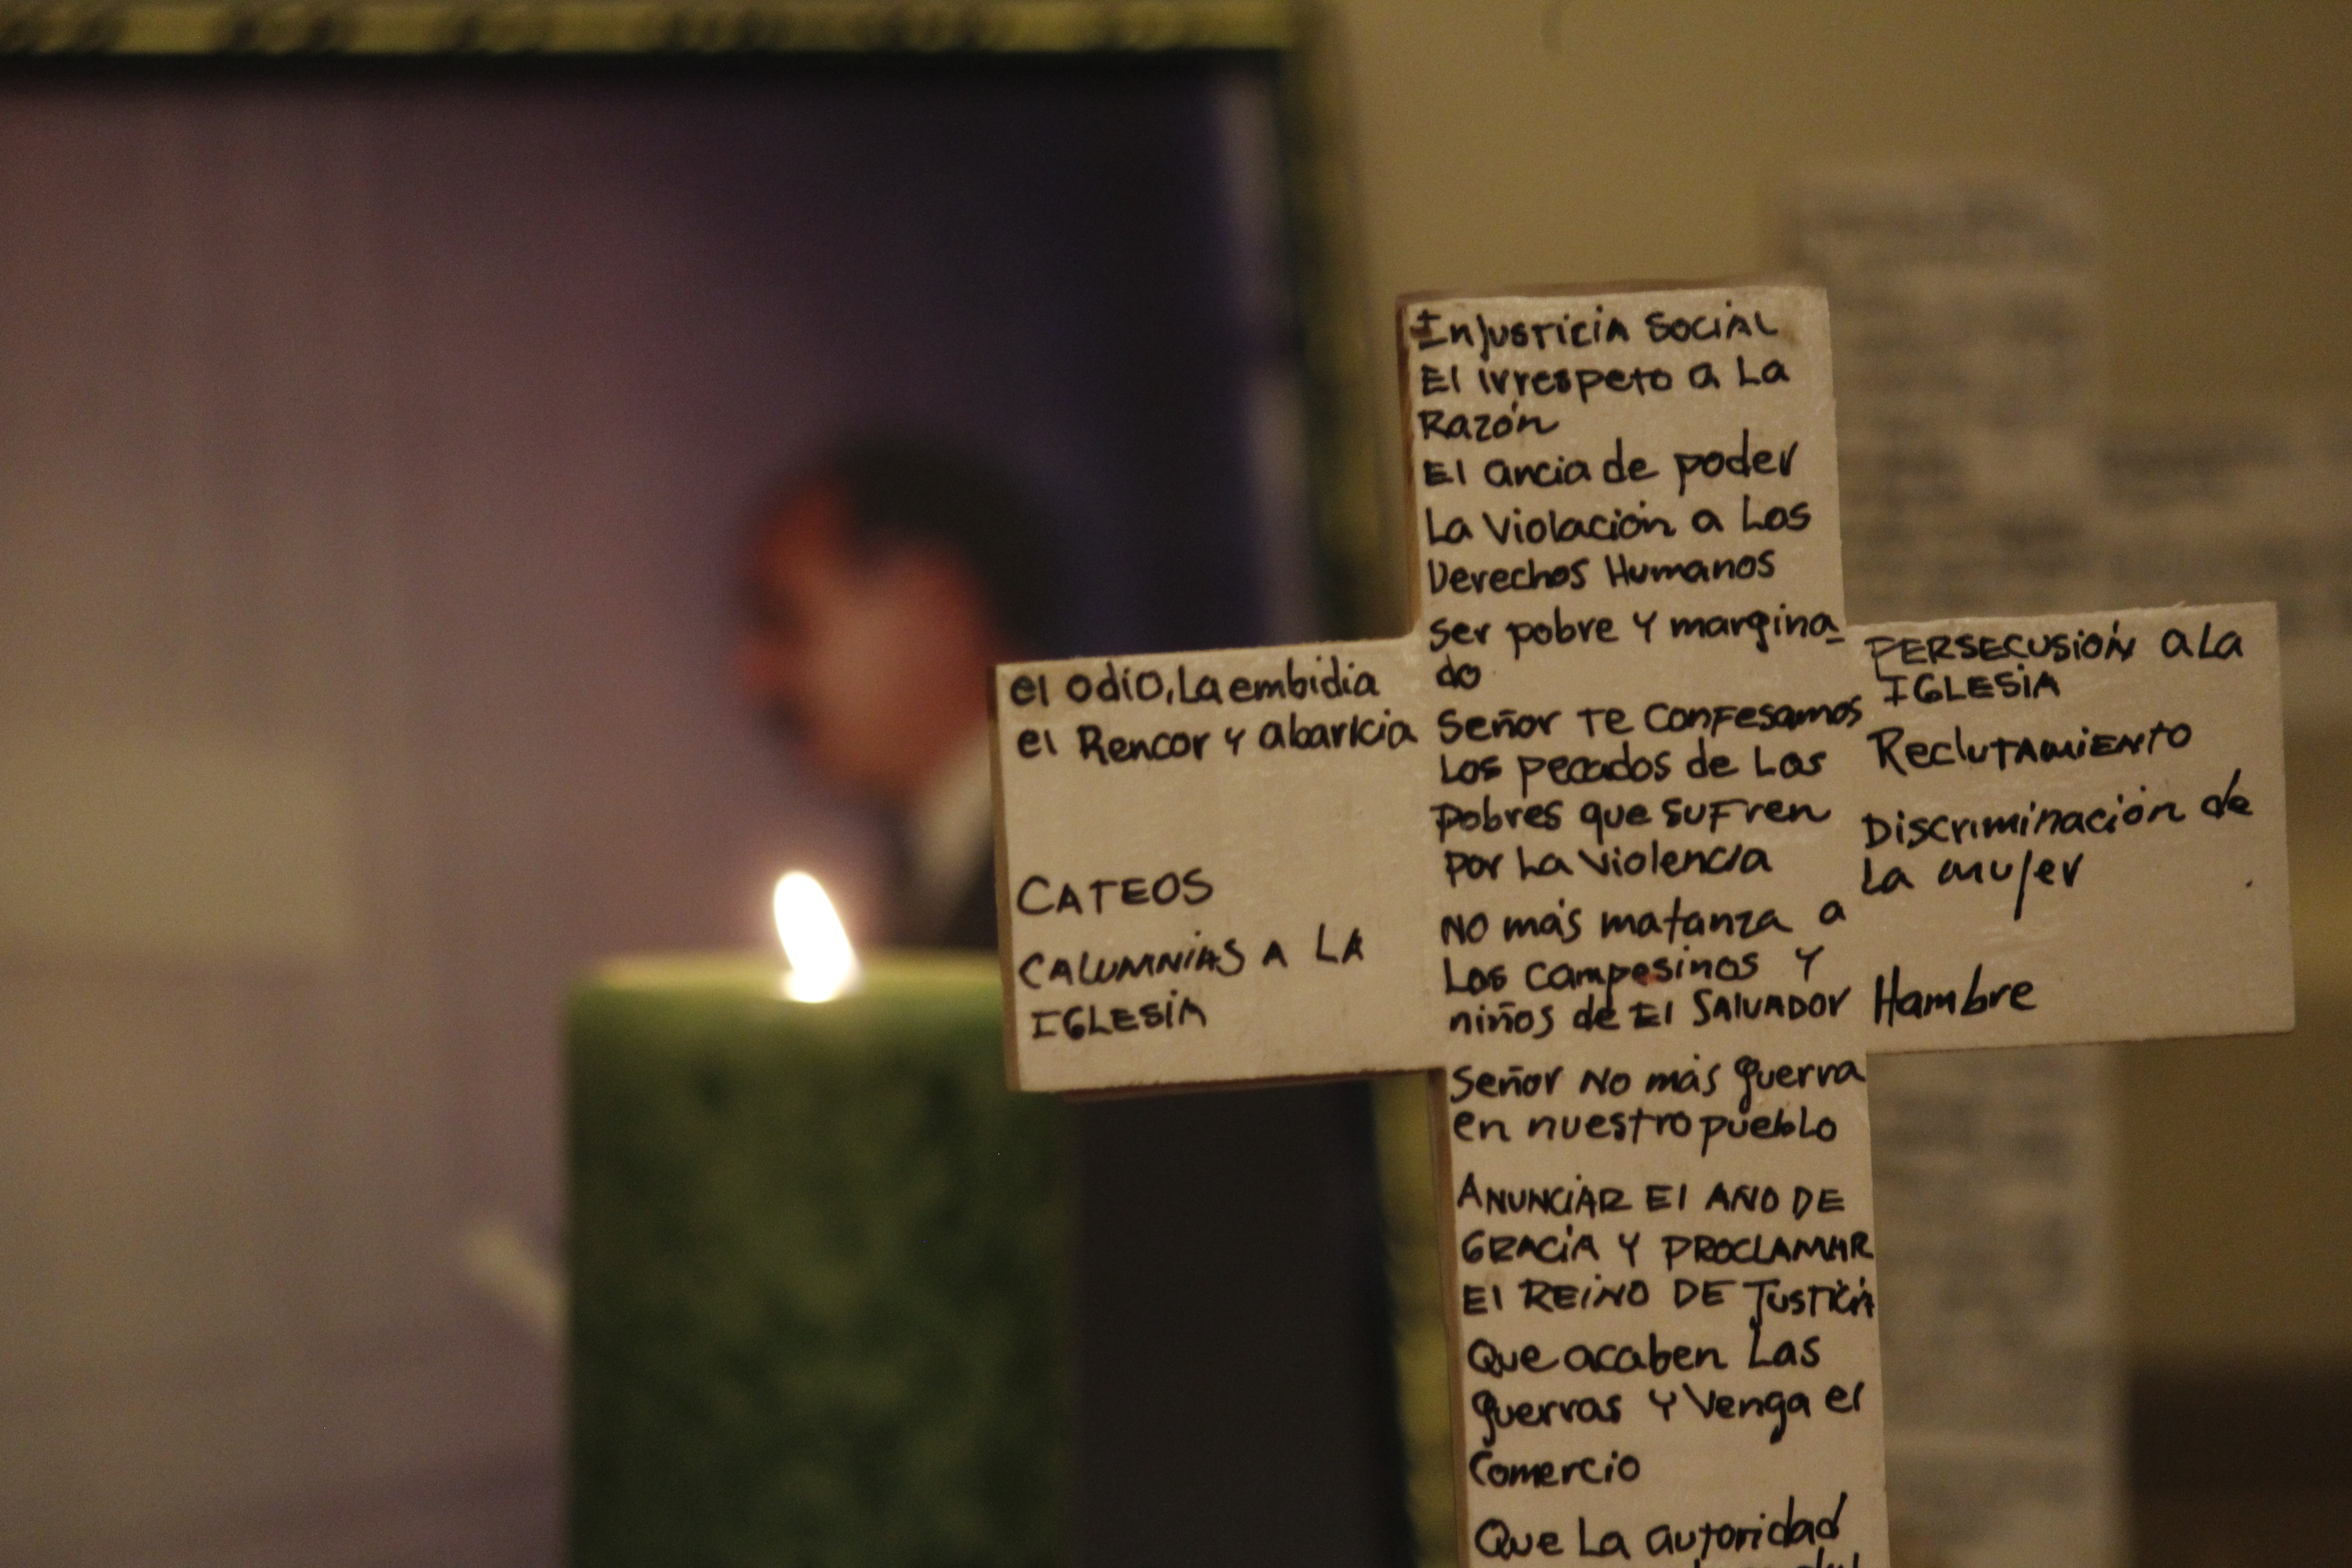 Injusticia social
El irrespeto a La
Razón
El ancia de poder
La Violación a Los
Derechos Humanos
ser pobre y margina-
do
Señor te confesamos
Los pecados de Los
pobres que sufren
por La violencia
No más matanza a
Los campesinos y
niños de El Salvador
Señor No más guerra
en nuestro pueblo
ANUNCIAR El AÑO DE
GRACIA Y PROCLAMAR
El REINO DE JUSTICIA
Que acaben Las
guerras y Venga el
Comercio
Que La autoridad
el odio, La embidia
el Rencor y abaricia
CATEOS
CALUMNIAS A LA
IGLESIA
PERSECUSIÓN a La
IGLESIA
Reclutamiento
Discriminación de
La mujer
Hambre